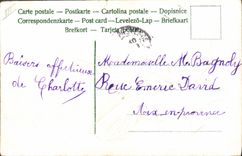 Carte postale - Postkarte - Cartolina postale - Dopisnice
Correspondenzkarte - Post card - Levelező-Lap - Briefkaart
Brefkort - Tarjeta
Baisers affectueux
de Charlotte
Mademoiselle M. Bagnoly
Rue Emeric David
Aix en provence